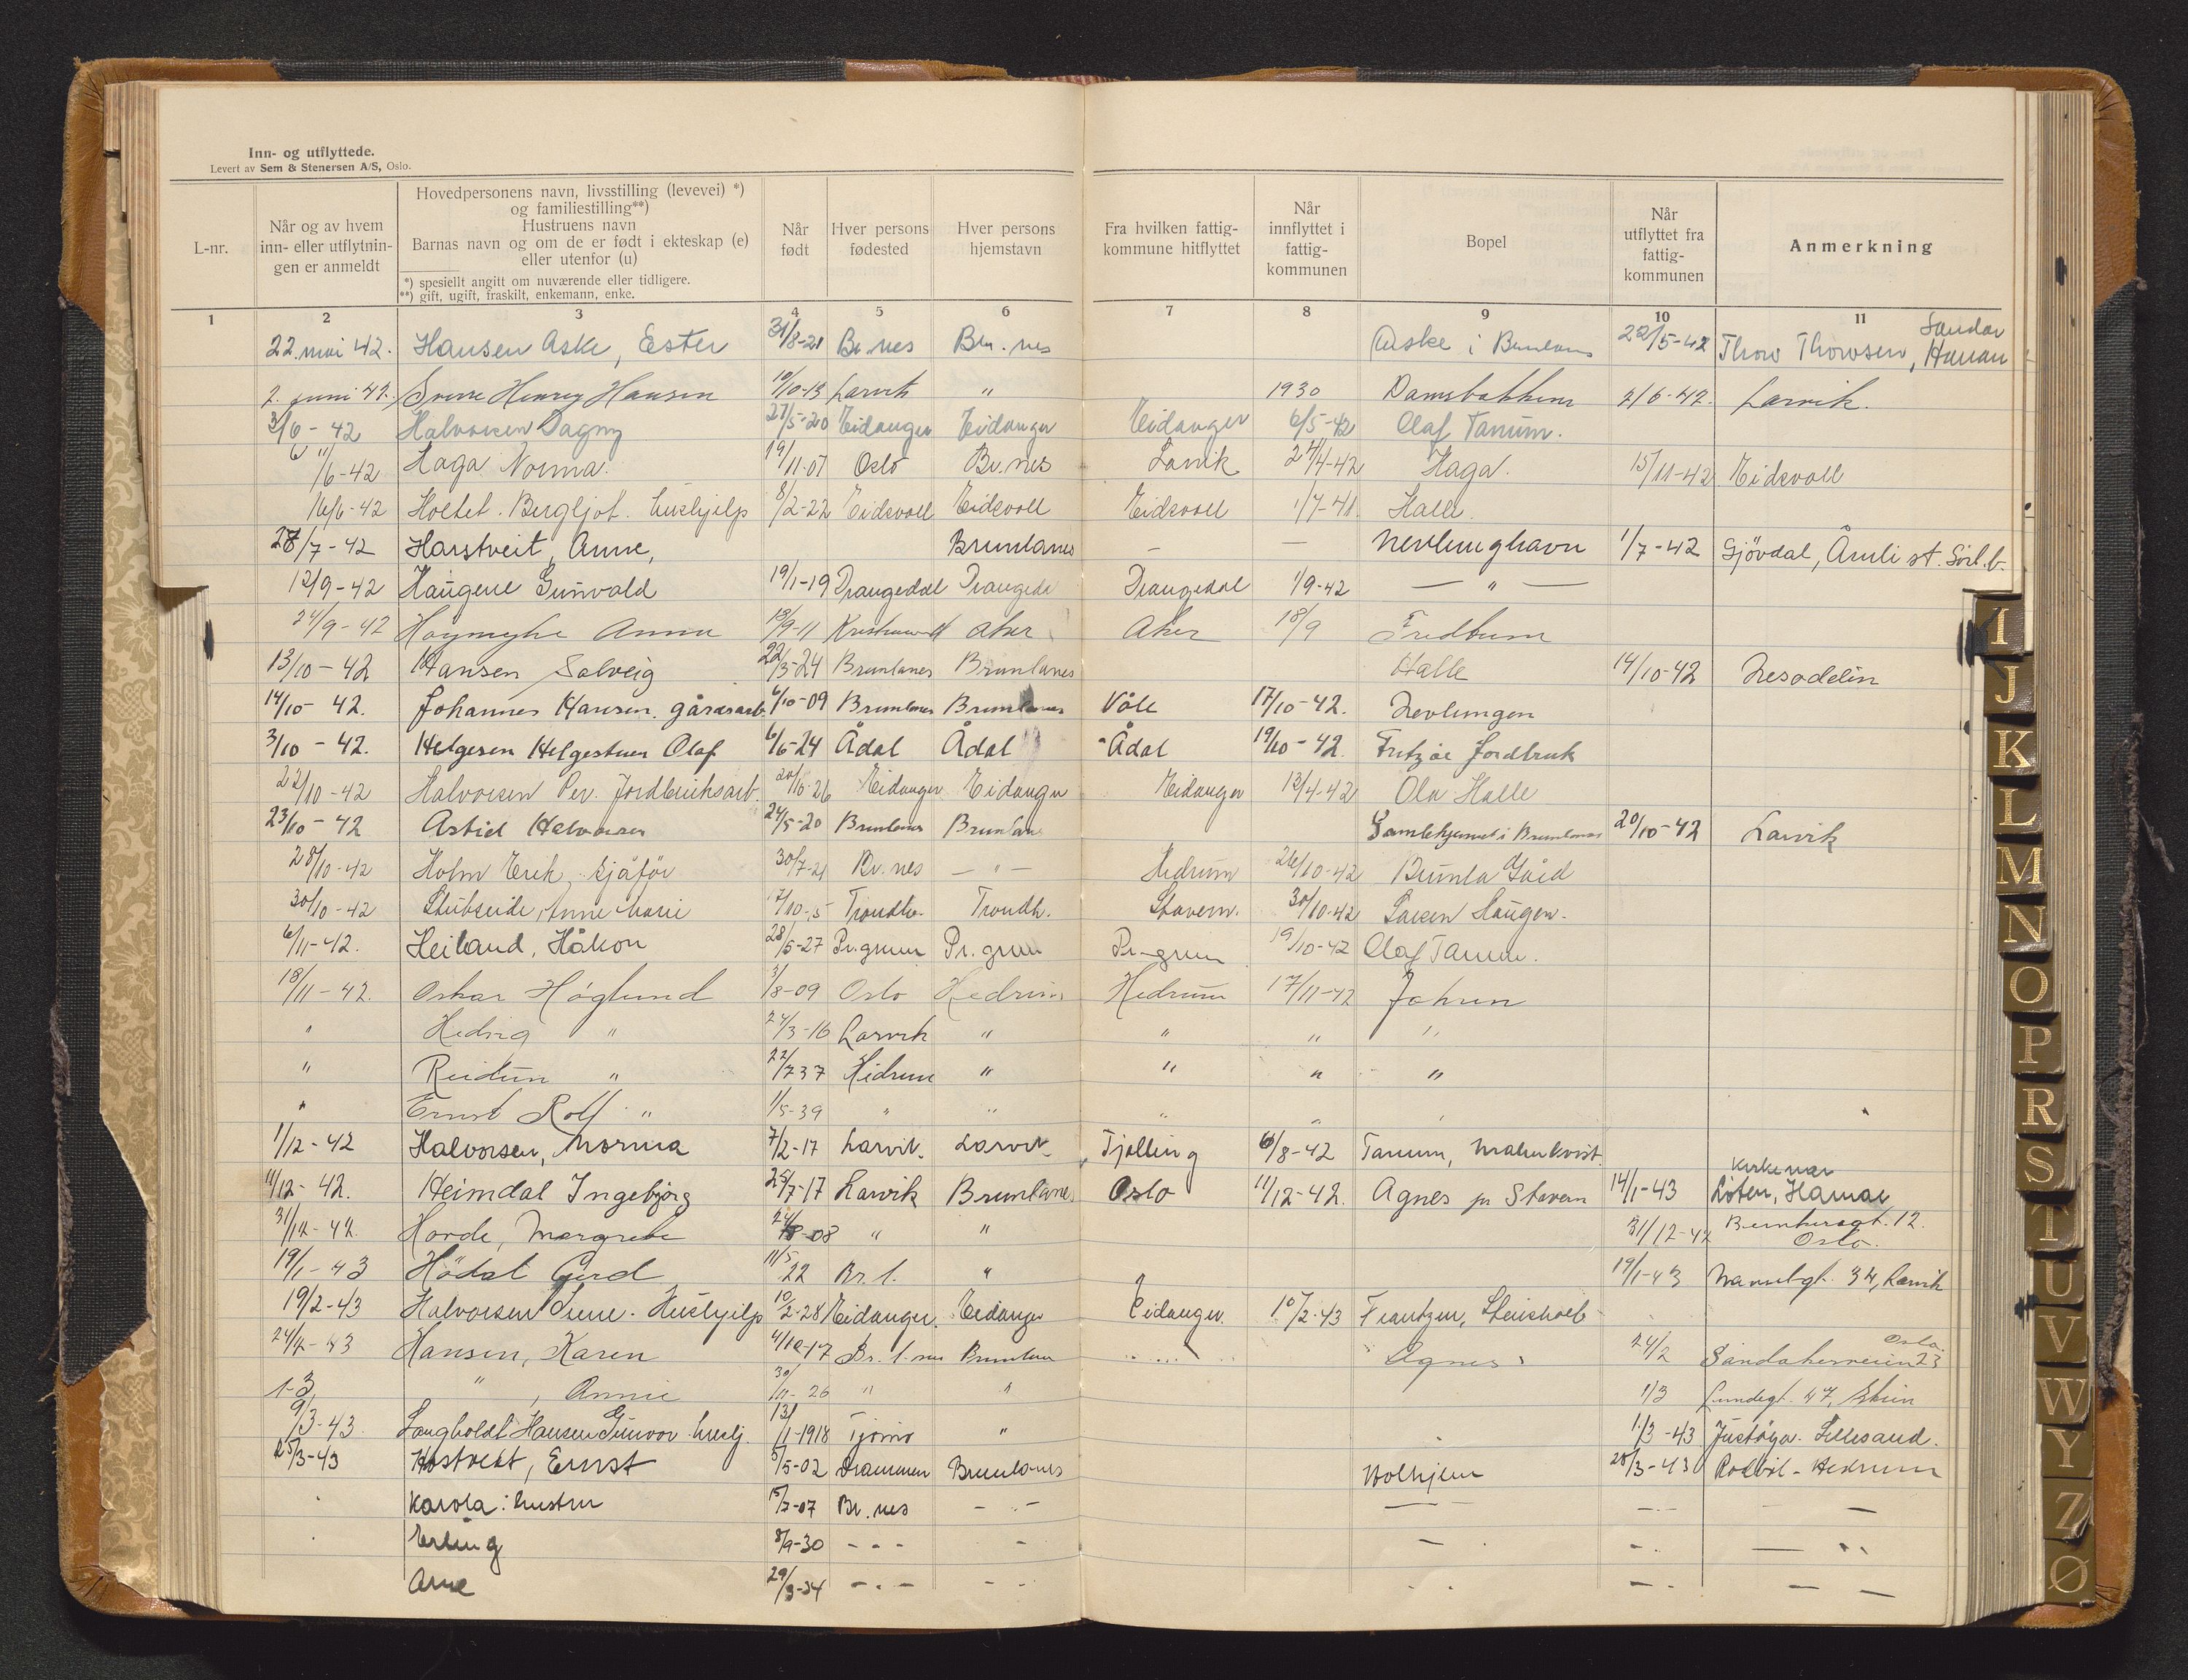 Inn- og utflyttede.
Levert av Sem & Stenersen A/S, Oslo.
L-nr.
Når og av hvem inn- eller utflytnin- gen er anmeldt
Hovedpersonens navn, livsstilling (levevei) *)
og familiestilling**)
Hustruens navn
Barnas navn og om de er født i ekteskap (e)
eller utenfor (u)
*) spesiellt angitt om nuværende eller tidligere.
**) gift, ugift, fraskilt, enkemann, enke.
Når født
Hver persons fødested
Hver persons hjemstavn
Fra hvilken fattig- kommune hitflyttet
Når innflyttet i fattig- kommunen
Bopel
Når utflyttet fra fattig- kommunen
Anmerkning
1 2 3 4 5 6 7 8 9 10 11
22. mai 42. Hansen Aske, Ester 31/8-21 Br.nes Brn.nes Aske i Brunlanes 22/5-42 Thow Thowsen, Sandar
2. juni 42. Sverre Henrey Hansen 10/10-13 Larvik " 1930 Damsbakken 2/6-42. Larvik.
3/6-42 Halvorsen Dagny 27/5-20 Eidanger Eidanger Eidanger 6/5-42 Olaf Tanum.
/6-42 Haga Norma. 19/11-07 Oslo Br.nes Larvik 24/4-42 Haga. 15/11-42 Eidsvoll
16/6-42 Holtet. Bergljot. hushjelp 8/2-22 Eidsvoll Eidsvoll Eidsvoll 1/7-41. Halle.
28/7-42 Harstveit, Anne, Brunlanes - - Nevlunghavn 1/7-42 Gjövdal, Åmli st. Sörl.b.
12/9-42 Haugene Gunvald 19/1-19 Drangedal Drangeda Drangedal 1/9-42 — " —
24/9-42 Anna 13/9-11 Aker Aker 18/9 Fredbum
13/10-42 Hansen Solveig 22/3-24 Brunlanes Brunlanes Halle 14/10-42 Nesodden
14/10-42. Johannes Hansen. gårdsarb. 6/10-09 Brunlanes Brunlanes Våle 17/10-42. Nevlungen
3/10-42. Helgesen Helgestuen Olaf 6/6-24 Ådal Ådal Ådal 19/10-42. Fritzøe Jordbruk
22/10-42 Halvorsen Per. Jordbruksarb. 20/10-26 Eidanger Eidanger Eidanger 13/4-42 Ola Halle
23/10-42 Astrid Halvorsen 24/5-20 Brunlanes Brunlanes Gamlehjemmet i Brunlanes 20/10-42 Larvik
28/10-42 Holm Erik, sjåför 30/7-21 Br.nes — " — Hedrum 26/10-42 Brunla Gård
30/10-42 Anne Marie 17/10-5 Trondh. Trondh. Stavern. 30/10-42 Larsen Haugen.
6/11-42. Heiland, Håkon 28/5-27 Pr.grunn Pr.grunn Pr.grunn 19/10-42 Olaf Tanum.
18/11-42. Oskar Höglund 3/8-09 Oslo Hedrum Hedrum 17/11-42 Jahren
" Hedvig " 24/3-16 Larvik " " " "
" Reidun " 22/7 37 Hedrum " " " "
" Ernst Rolf " 1/5-39 " " " " "
1/12-42 Halvorsen, Norma 7/2-17 Larvik. Larvik Tjølling 6/8-42 Tanum, Malmkvist.
11/12-42. Heimdal Ingebjörg 25/7-17 Larvik Brunlanes Oslo 11/12-42. Agnes pr Stavern 14/1-43 Löten, Hamar
31/12-42. Horde, Margrethe 24/8-08 " " 31/12-42 12. Oslo.
19/1-43 Hödal Gerd 11/5 22 Br.l. " 19/1-43 34, Larvik
19/2-43 Halvorsen Hushjelp 10/2-28 Eidanger. Eidanger Eidanger. 10/2-43 Frantzen, Steinsholt
24/2-43 Hansen, Karen 4/10-17 Br.l.nes Brunlanes Agnes 24/2 Sandakerveien 23 Oslo.
1-3 " , Annie 30/11-26 " " 1/3 Lundegt. 47, Skien
9/3-43. Langholdt Hansen Gunvor. 13/1-1918 Tjømø " 1/3-43 Justöya. Lillesand.
25/3-43 Hostvedt, Ernst 5/5-02 Drammen Brunlanes Holhjem 28/3-43 Hedrum
Karola: hustru 15/7-07 Br.nes - . - — -.- —
Erling 8/9-30 - - - - - -. — "
Arne 29/3-34 -.- - - -. — —
I
J
K
L
M
N
O
P
R
S
T
U
V
W
Y
Z
Ø